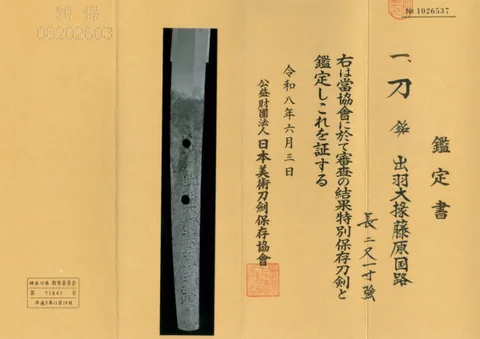 № 1026537
鑑定書
一、刀 銘 出羽大掾藤原国路
長二尺一寸強
右は當協會に於て審査の結果特別保存刀剣と
鑑定しこれを証する
令和八年六月三日
公益財團法人日本美術刀剣保存協會
神奈川県 教育委員会